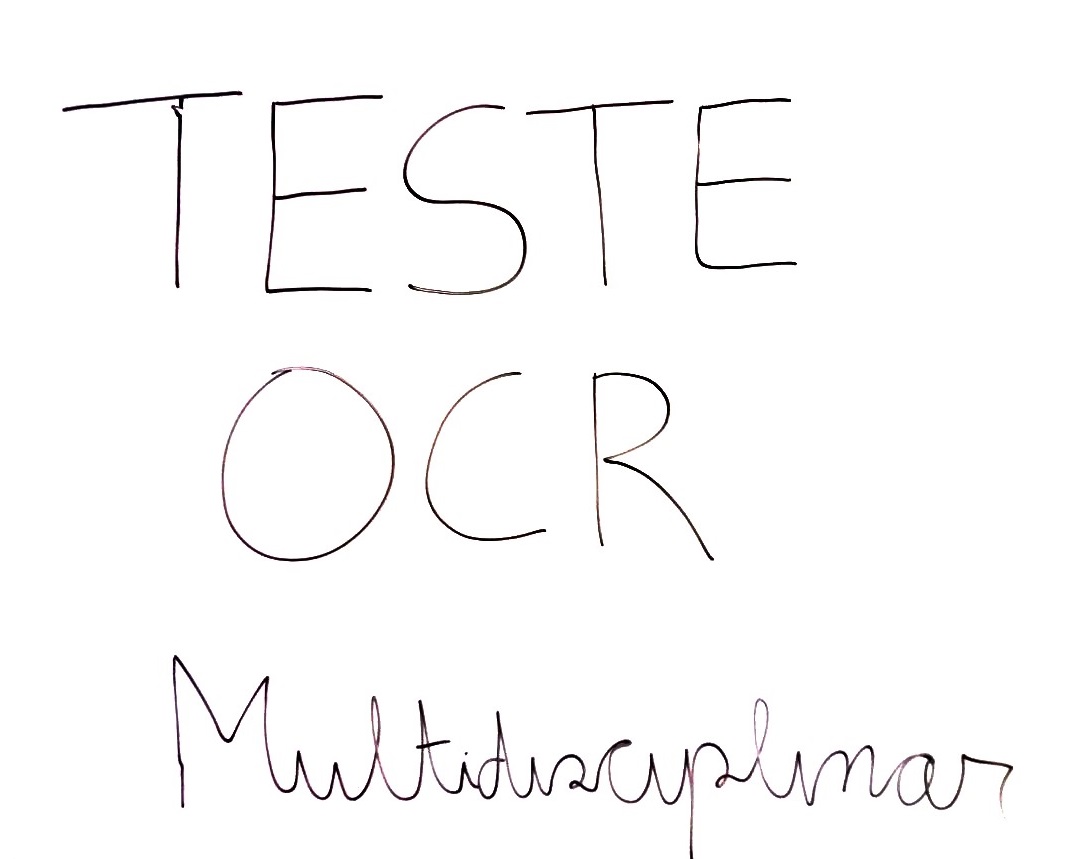 TESTE
OCR
Multidisciplinar